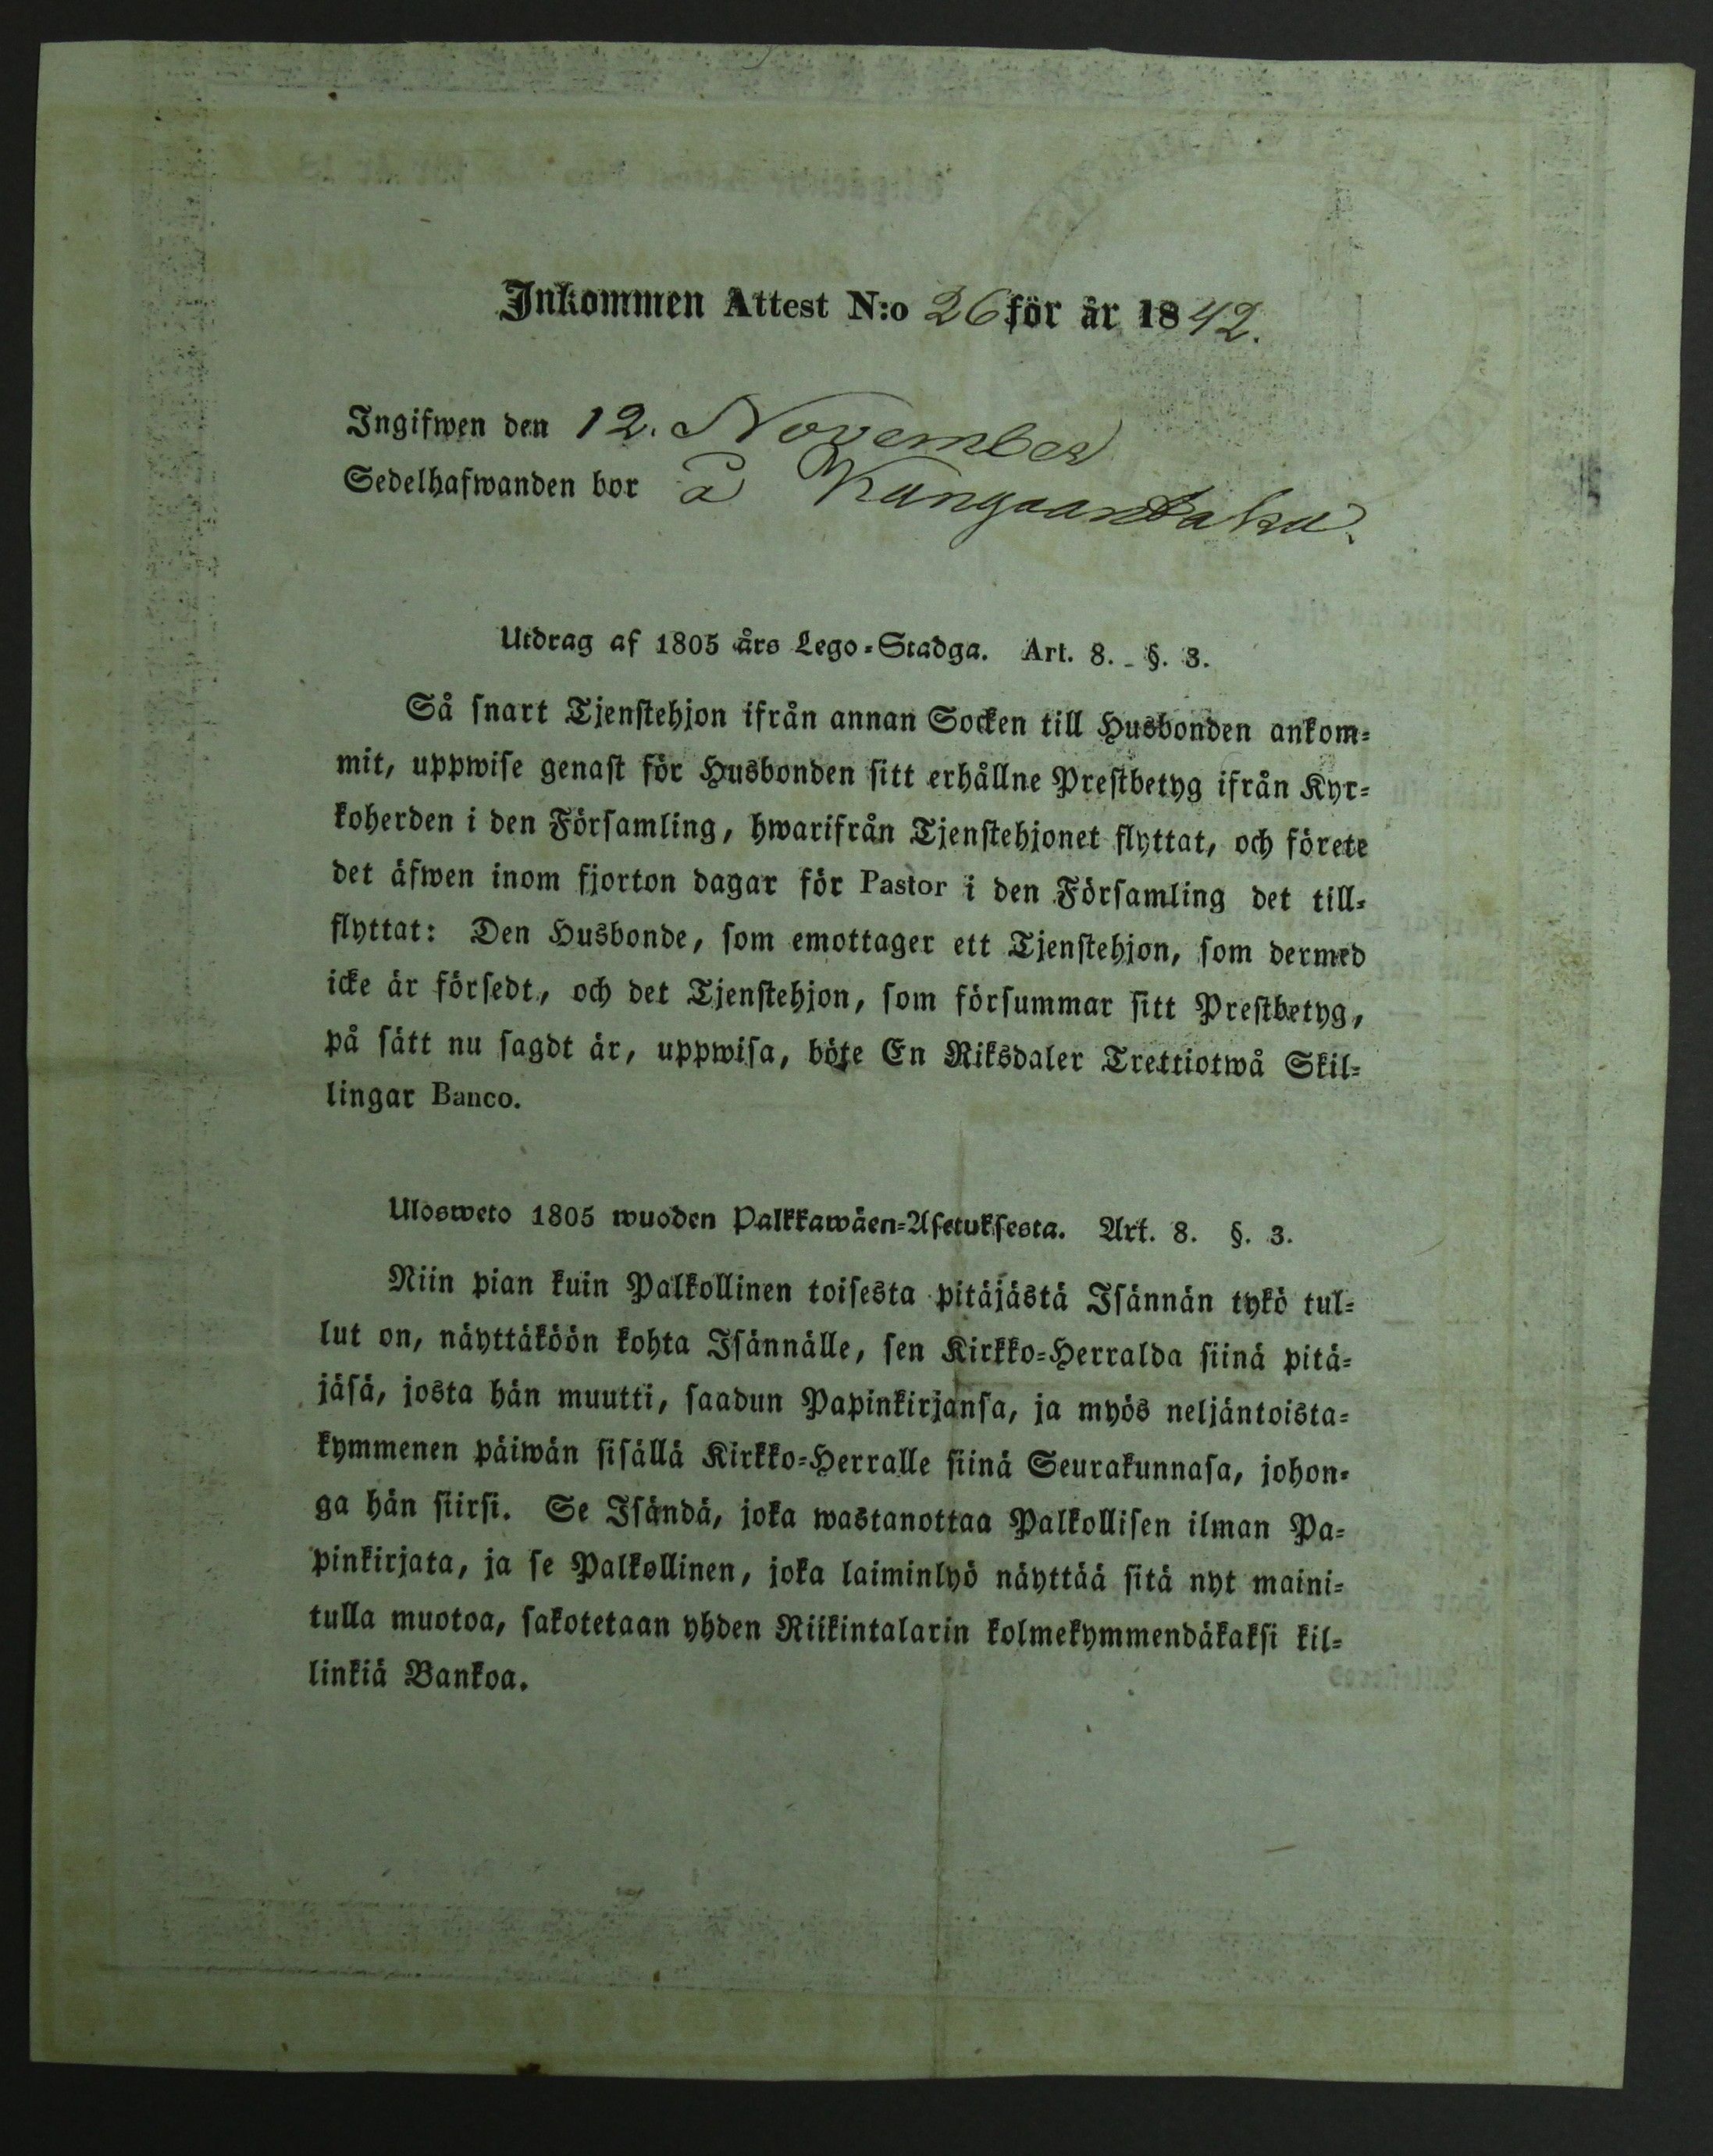 Inkommen Attest N:o 26 för år 1842.
Ingifwen den 12. November
Sedelhafwanden bor å Kangaantaka.
Utdrag af 1805 års Lego-Stadga. Art. 8. §. 3.
Så snart Tjenstehjon ifrån annan Socken till Husbonden ankom-
mit, uppwise genast för Husbonden sitt erhållne Prestbetyg ifrån Kyr-
koherden i den Församling, hwarifrån Tjenstehjonet flyttat, och förete
det äfwen inom fjorton dagar för Pastor i den Församling det till-
flyttat: Den Husbonde, som emottager ett Tjenstehjon, som dermed
icke är försedt, och det Tjenstehjon, som försummar sitt Prestbetyg,
på sätt nu sagdt är, uppwisa, böte En Riksdaler Trettiotwå Skil-
lingar Banco.
Ulosweto 1805 wuoden Palkkawäen-Asetuksesta. Art. 8. §. 3.
Niin pian kuin Palkollinen toisesta pitäjästä Isännän tykö tul-
lut on, näyttäköön kohta Isännälle, sen Kirkko-Herralda siinä pitä-
jäsä, josta hän muutti, saadun Papinkirjansa, ja myös neljäntoista-
kymmenen päiwän sisällä Kirkko-Herralle siinä Seurakunnasa, johon-
ga hän siirsi. Se Isändä, joka wastanottaa Palkollisen ilman Pa-
pinkirjata, ja se Palkollinen, joka laiminlyö näyttää sitä nyt maini-
tulla muotoa, sakotetaan yhden Riikintalarin kolmekymmendäkaksi kil-
linkiä Bankoa.